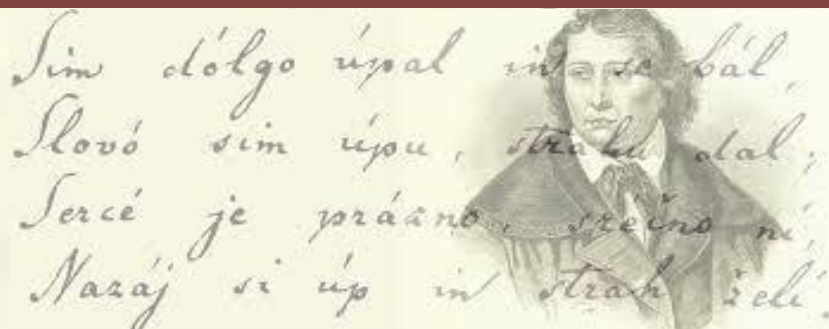 Sim dólgo úpal in se bál,
Slovó sim úpu, strahu dal;
Sercé je prázno, srečno ni,
Nazáj si úp in strah želí.